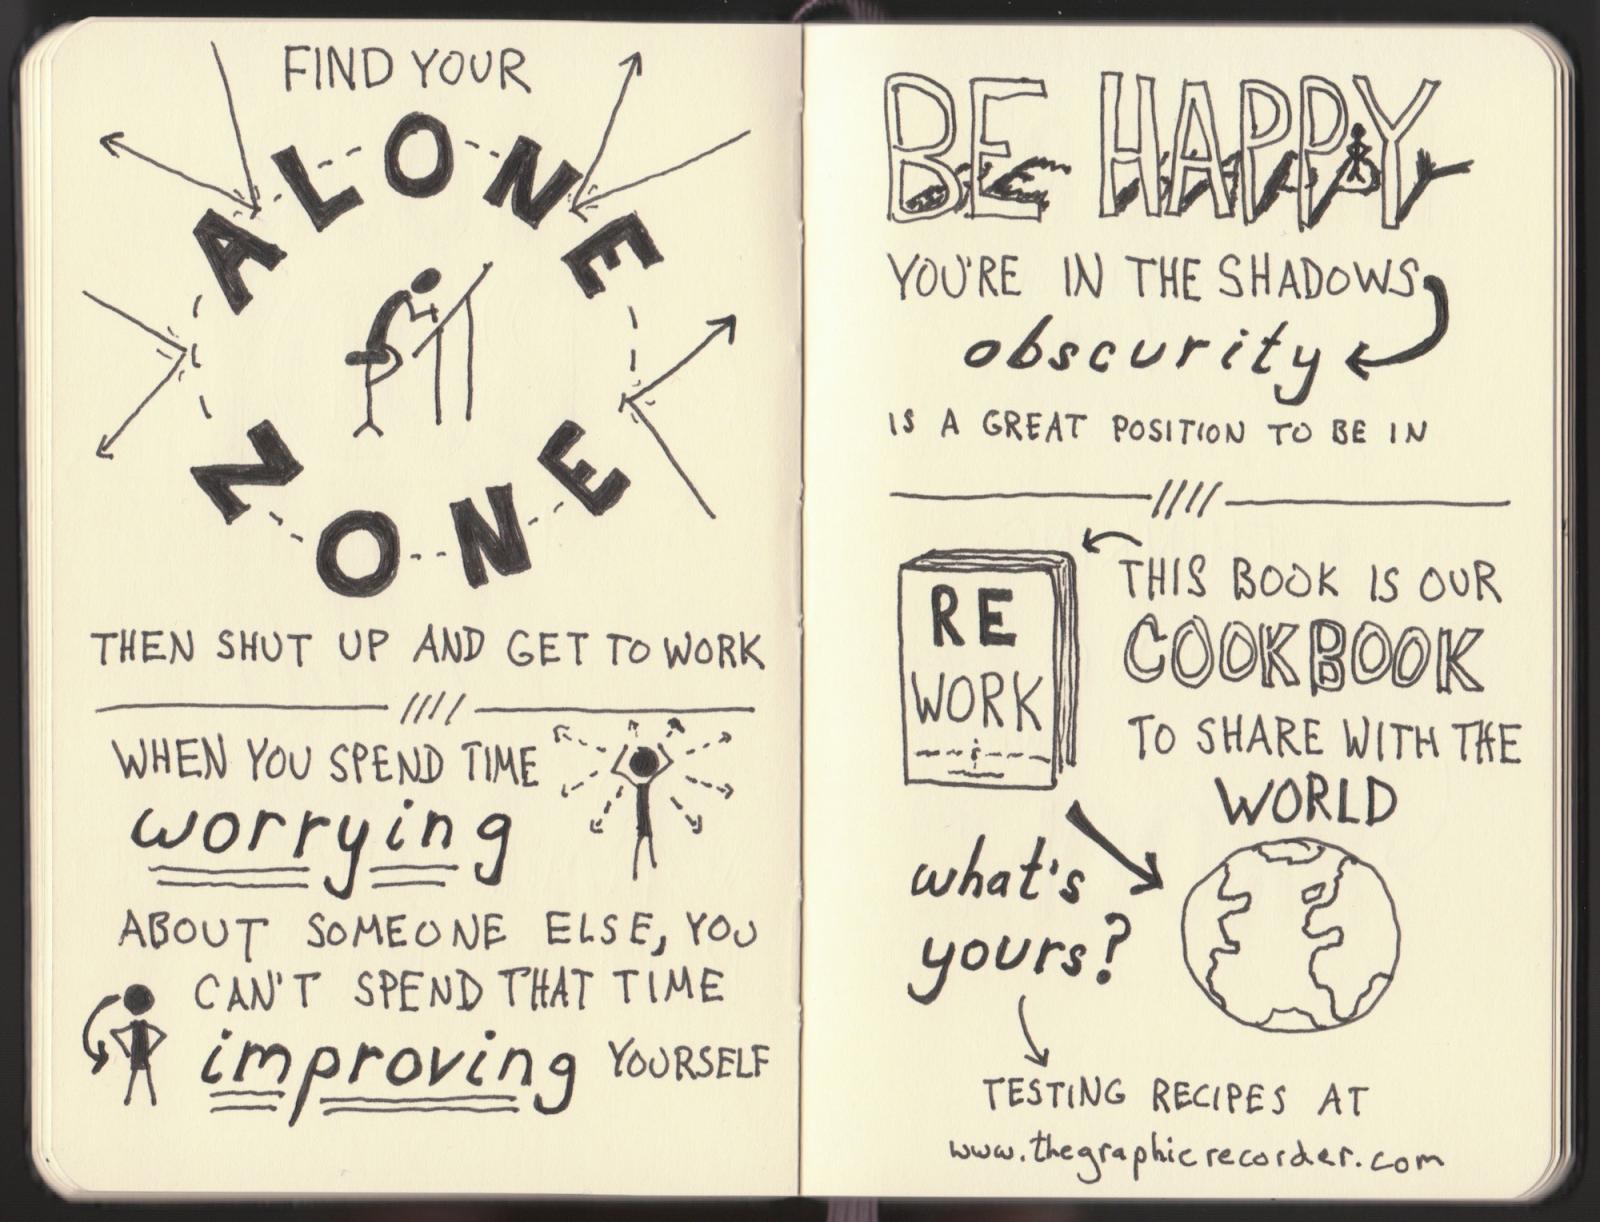 FIND YOUR
ALONE
ZONE
THEN SHUT UP AND GET TO WORK
WHEN YOU SPEND TIME
worrying
ABOUT SOMEONE ELSE, YOU
CAN'T SPEND THAT TIME
improving YOURSELF
BE HAPPY
YOU'RE IN THE SHADOWS
obscurity
IS A GREAT POSITION TO BE IN
RE
WORK
THIS BOOK IS OUR
COOKBOOK
TO SHARE WITH THE
WORLD
what's
yours?
TESTING RECIPES AT
www.thegraphicrecorder.com